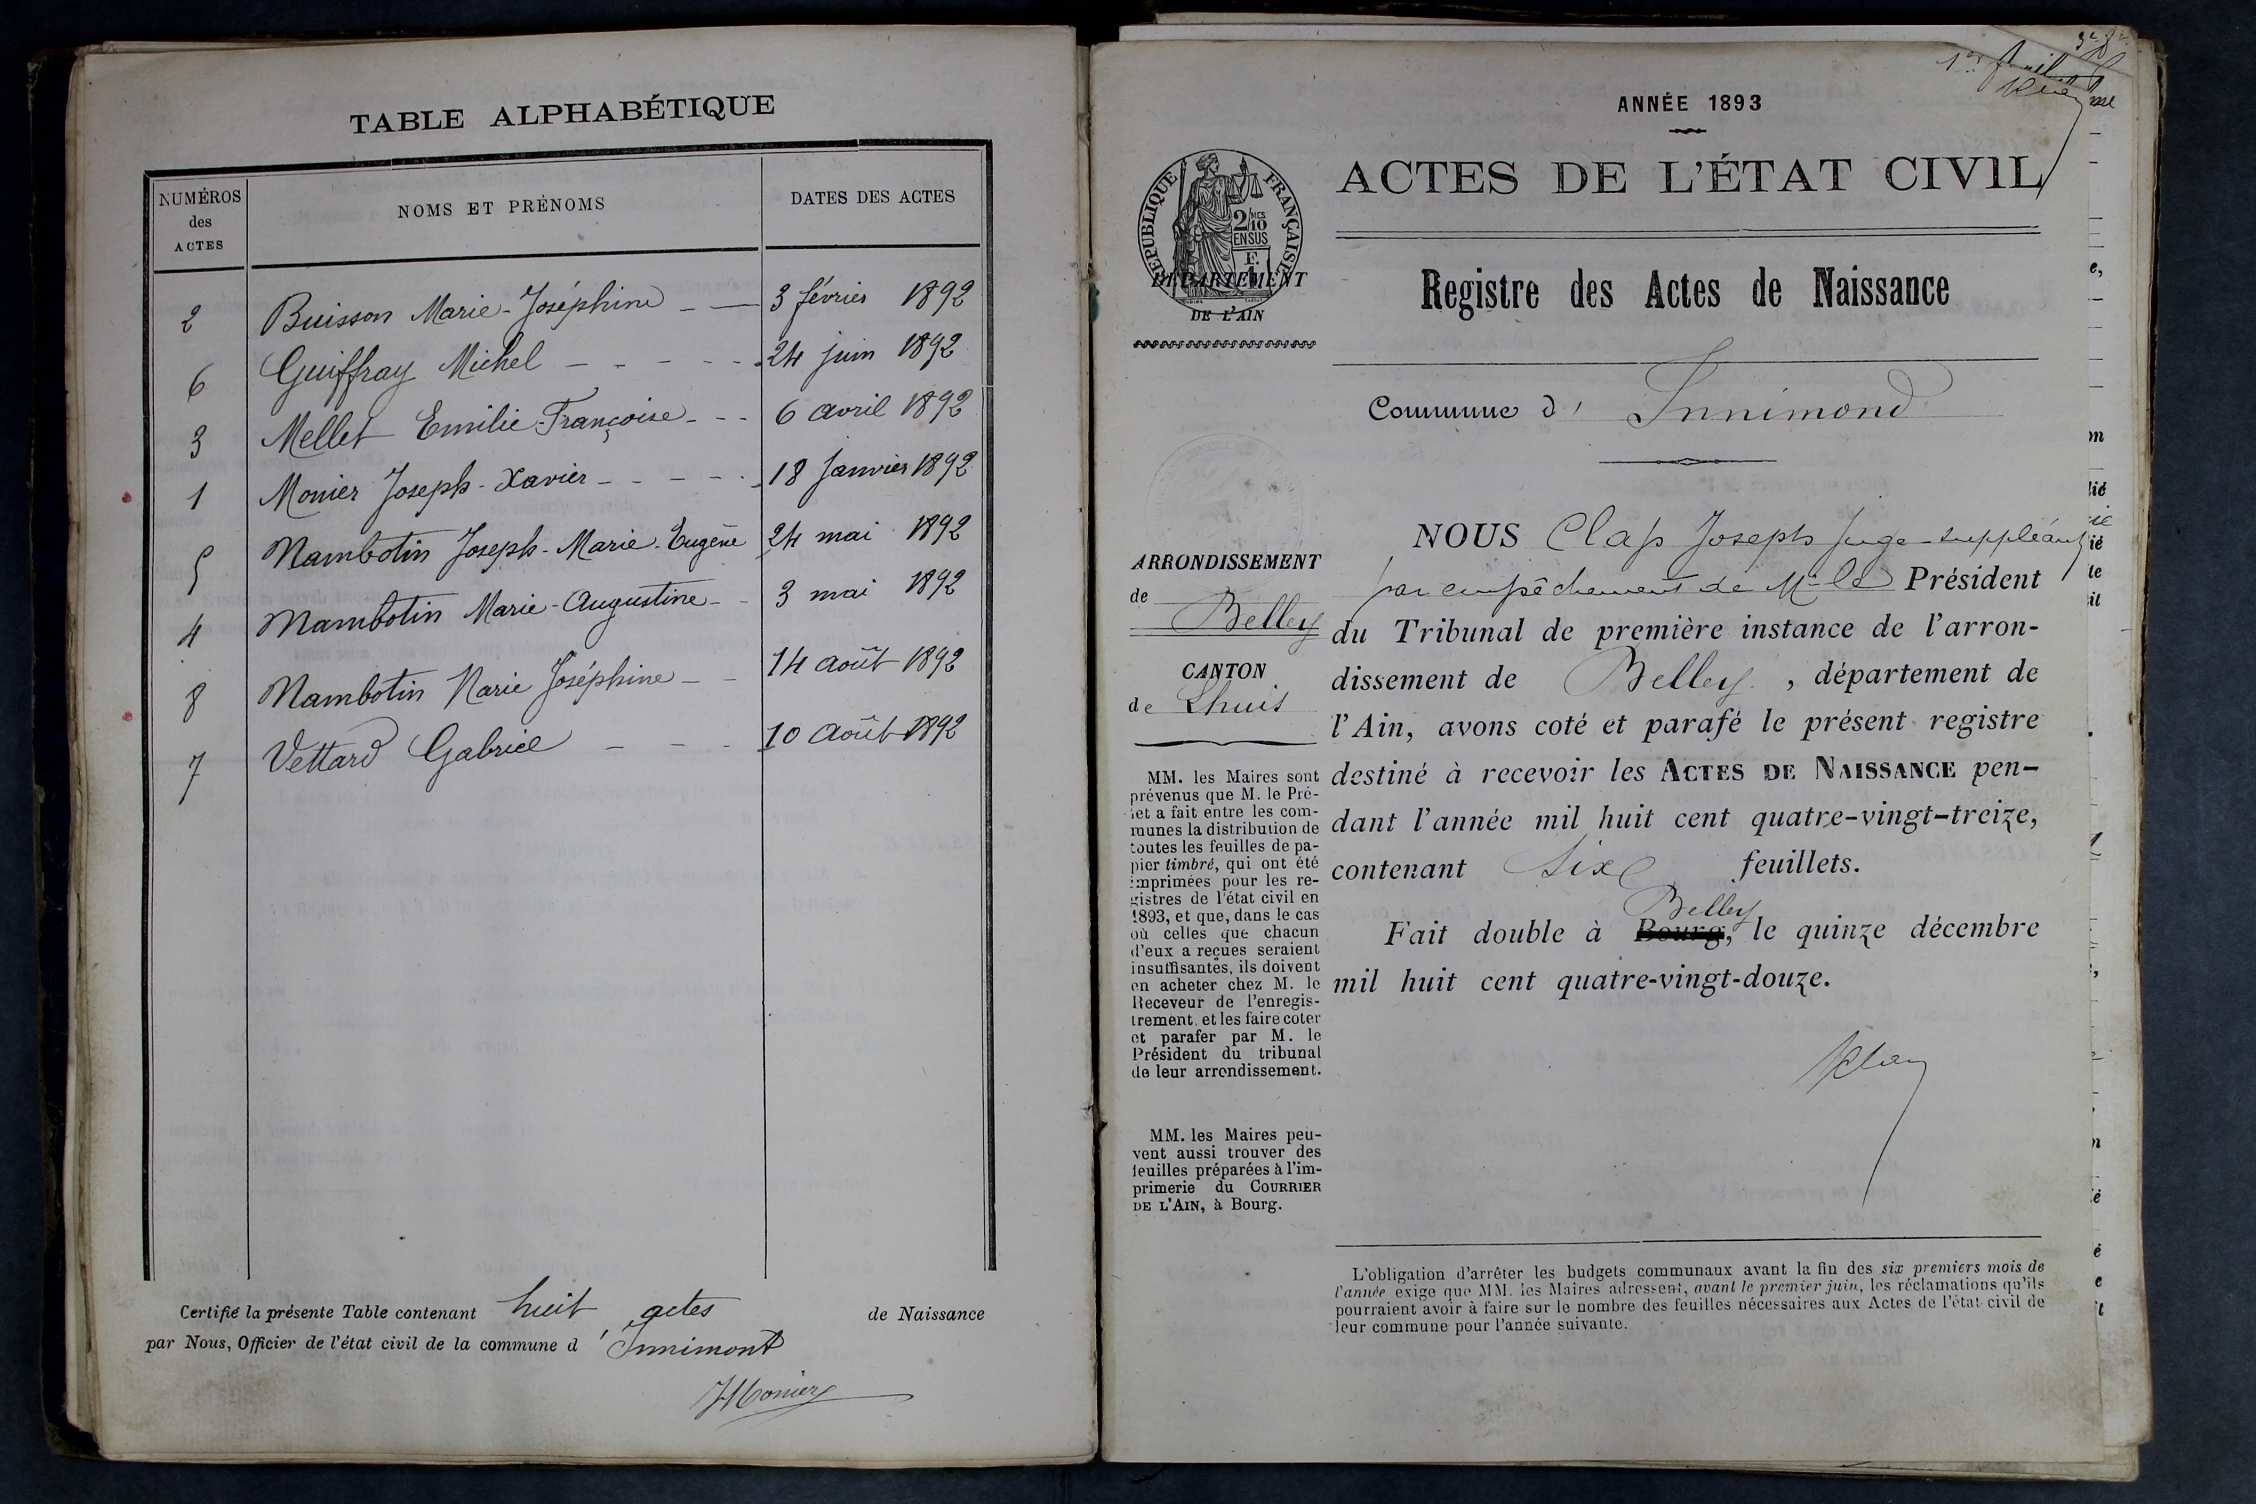 TABLE ALPHABÉTIQUE
NUMÉROS
des
ACTES
NOMS ET PRÉNOMS
DATES DES ACTES
2 Buisson Marie-Joséphine 3 février 1892
6 Guiffray Michel 24 juin 1892
3 Mellet Emilie-Françoise 6 avril 1892
1 Monier Joseph-Xavier 18 janvier 1892
5 Mambotin Joseph-Marie-Eugène 24 mai 1892
4 Mambotin Marie-Augustine 3 mai 1892
8 Mambotin Marie Joséphine 14 août 1892
7 Vettard Gabriel 10 août 1892
Certifié la présente Table contenant huit actes de Naissance
par Nous, Officier de l'état civil de la commune d' Innimont
JMonier
ANNÉE 1893
ACTES DE L'ÉTAT CIVIL
RÉPUBLIQUE FRANÇAISE
2/10
EN SUS
DÉPARTEMENT
DE L'AIN
Registre des Actes de Naissance
Commune d' Innimond
ARRONDISSEMENT
de
Belley
CANTON
de Lhuis
MM. les Maires sont
prévenus que M. le Pré-
fet a fait entre les com-
munes la distribution de
toutes les feuilles de pa-
pier timbré, qui ont été
imprimées pour les re-
gistres de l'état civil en
1893, et que, dans le cas
où celles que chacun
d'eux a reçues seraient
insuffisantes, ils doivent
en acheter chez M. le
Receveur de l'enregis-
trement, et les faire coter
et parafer par M. le
Président du tribunal
de leur arrondissement.
MM. les Maires peu-
vent aussi trouver des
feuilles préparées à l'im-
primerie du COURRIER
DE L'AIN, à Bourg.
NOUS Clap Joseph Juge-suppléant
par empêchement de Mr le Président
du Tribunal de première instance de l'arron-
dissement de Belley, département de
l'Ain, avons coté et parafé le présent registre
destiné à recevoir les ACTES DE NAISSANCE pen-
dant l'année mil huit cent quatre-vingt-treize,
contenant six feuillets.
Belley
Fait double à Bourg, le quinze décembre
mil huit cent quatre-vingt-douze.
L'obligation d'arrêter les budgets communaux avant la fin des six premiers mois de
l'année exige que MM. les Maires adressent, avant le premier juin, les réclamations qu'ils
pourraient avoir à faire sur le nombre des feuilles nécessaires aux Actes de l'état civil de
leur commune pour l'année suivante.